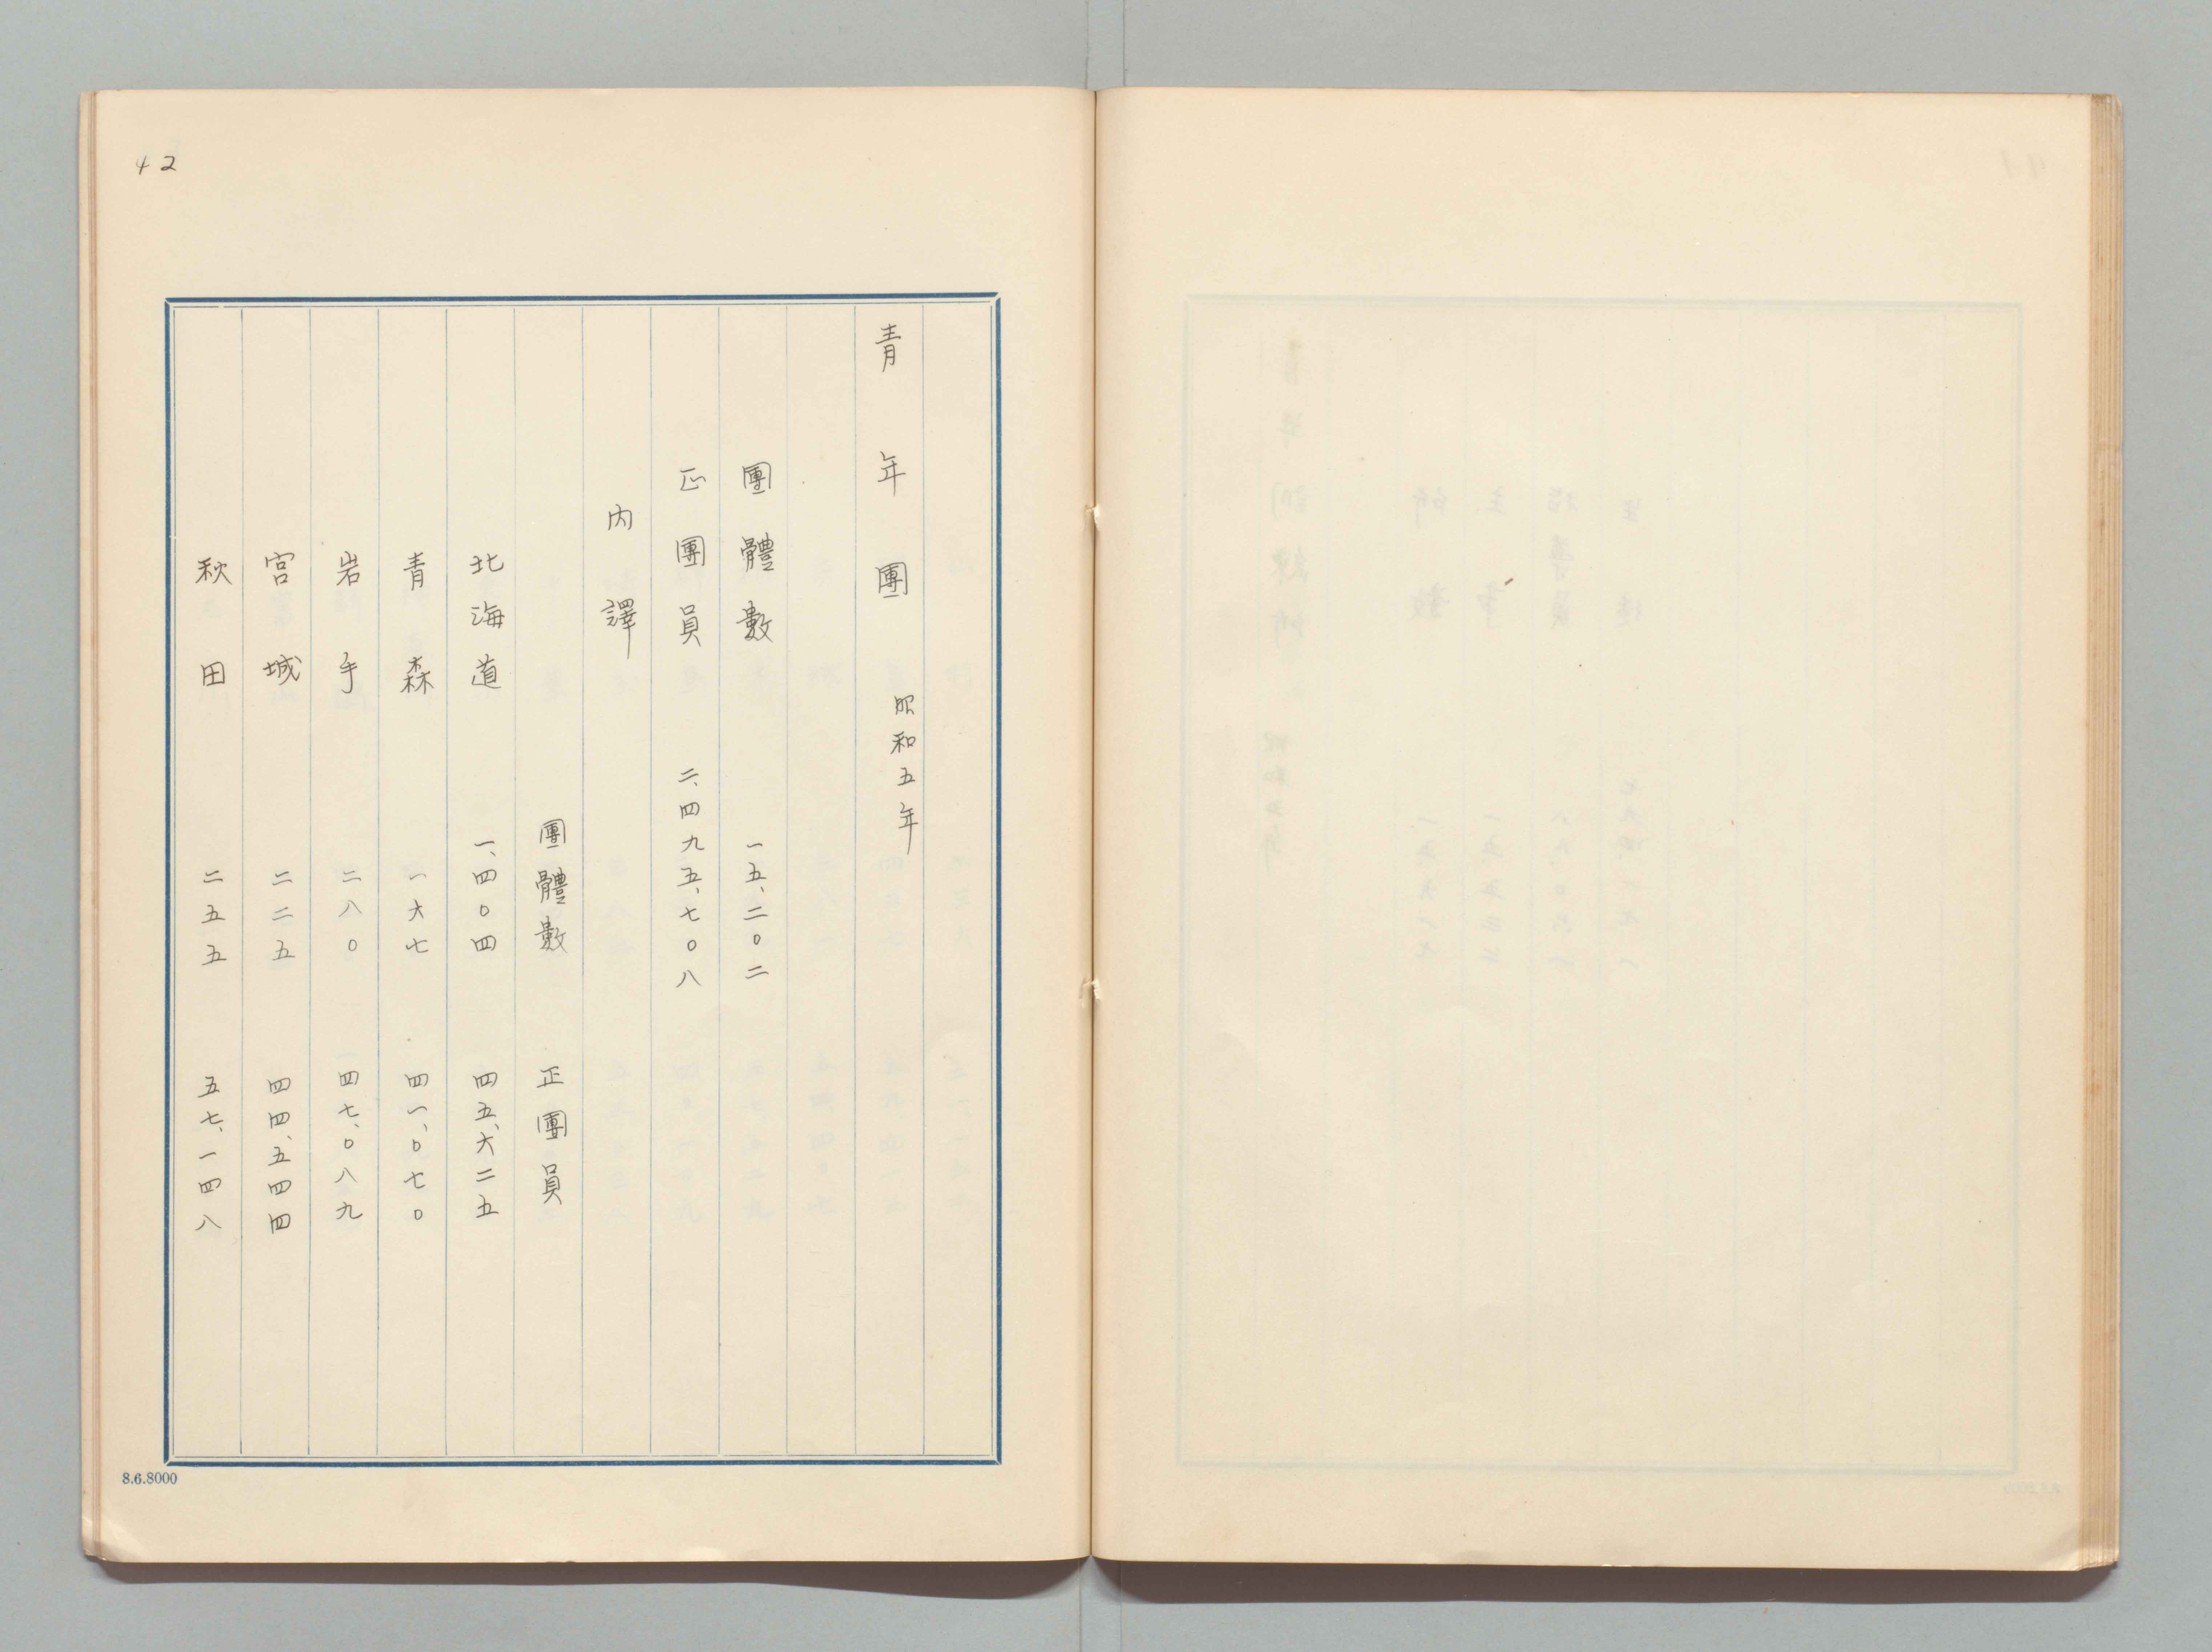 42
青年團 昭和五年
團體數 一五、二〇二
正團員 二、四九五、七〇八
內譯
團體數 正團員
北海道 一、四〇四 四五、六二五
青森 一六七 四一、〇七〇
岩手 二八〇 四七、〇八九
宮城 二二五 四四、五四四
秋田 二五五 五七、一四八
8.6.8000